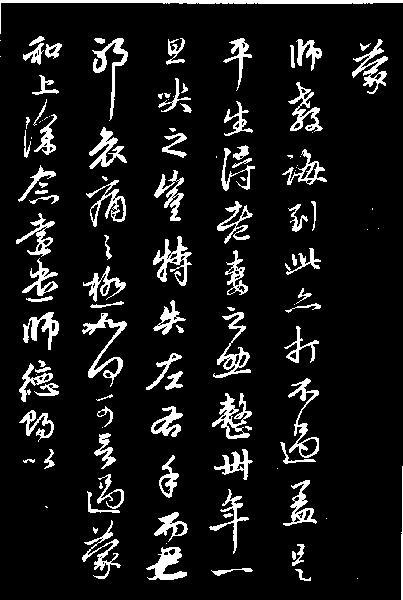 蒙
師教誨到此亦打不過蓋是
平生得老妻之助整卅年一
旦哭之豈特失左右手而已
耶哀痛之極如何可言過蒙
和上深念遠遣師德賜以